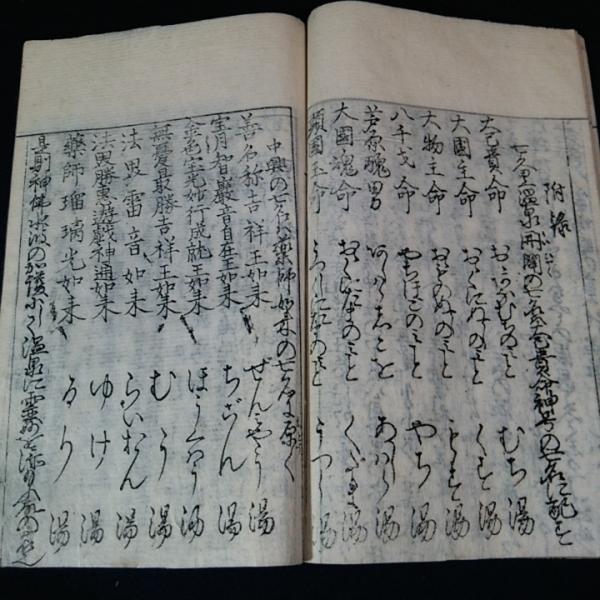 附錄
七久里温泉開闢の七名大己貴命神号の七名に配す
大己貴命 おゝあなむちのみこと むち 湯
大國主命 おゝくにぬしのみこと 湯
大物主命 おゝものぬしのみこと 湯
八千戈命 やちほこのみこと やち 湯
葦原醜男 あしはらしこを あしハら 湯
大國魂命 おゝくにたまのみこと 湯
顕國玉命 うつしくにたまのみこと うつし 湯
中興の七名ハ薬師如来の七名に原く
善名称吉祥王如来 ぜんミやう 湯
宝月智嚴音自在王如来 ちごん 湯
金色宝光妙行成就王如来 ほうくハう 湯
無憂最勝吉祥王如来 むう 湯
法界雷音如来 らいおん 湯
法界勝恵遊戯神通如来 ゆけ 湯
藥師瑠璃光如来 るり 湯
是則神佛の加護にして温泉に靈